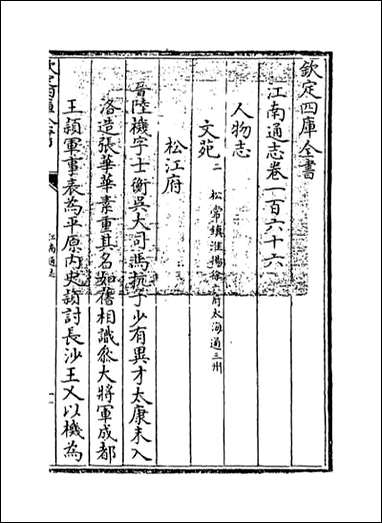 欽定四庫全書
江南通志卷一百六十六
人物志
文苑二 松常鎮淮揚徐六府太海通三州
松江府
晉陸機字士衡吳大司馬抗子少有異才太康末入
洛造張華華素重其名如舊相識叅大將軍成都
王頴軍事表為平原內史頴討長沙王乂以機為
江南通志